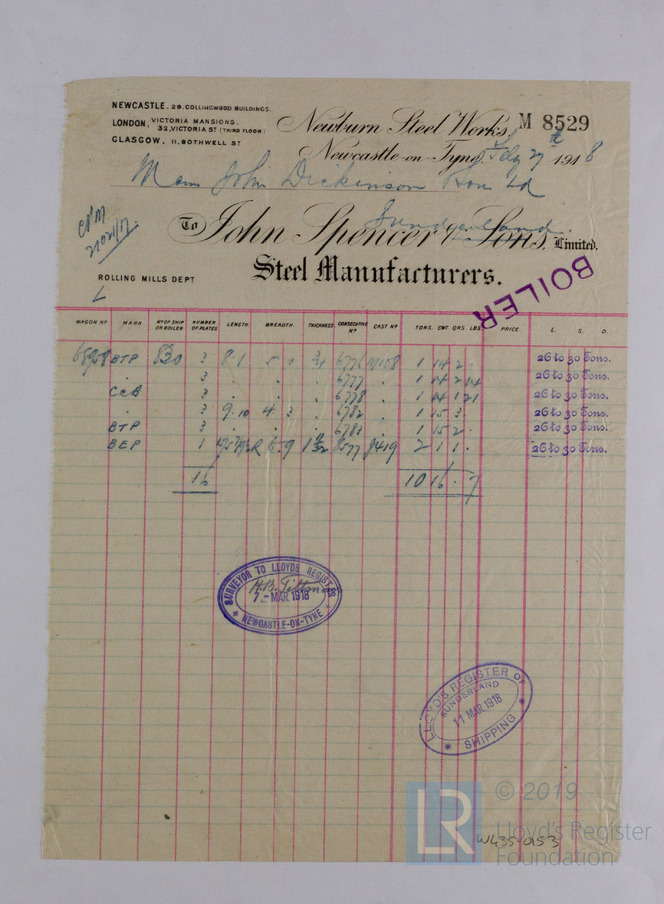 NEWCASTLE. 29. COLLINGWOOD BUILDINGS.
LONDON. VICTORIA MANSIONS.
32, VICTORIA ST (THIRD FLOOR)
GLASGOW. 11, BOTHWELL ST
Newburn Steel Works, M 8529
Newcastle-on-Tyne, Feby 27th 1918
Mess John Dickinson Sons Ld
Sunderland.
To John Spencer & Sons, Limited.
Steel Manufacturers.
ROLLING MILLS DEPT
BOILER
WAGON No MARK No OF SHIP OR BOILER NUMBER OF PLATES LENGTH BREADTH THICKNESS CONSECUTIVE No CAST No TONS. CWT QRS. LBS PRICE L. S. D.
BTP 530 3 8 1 5 6776 1 14 2 . 26 to 30 Tons.
3 . . . 6777 . 1 14 2 14 26 to 30 Tons.
CCB 3 . . . 6778 . 1 14 1 21 26 to 30 Tons.
. 3 9.10 4 3 . 6782 . 1 15 3 . 26 to 30 Tons.
BTP 3 . . . 6781 . 1 15 2 . 26 to 30 Tons.
BEP 1 6 9 8577 9419 2 1 1 . 26 to 30 Tons.
16 10 16 . 7
SURVEYOR TO LLOYDS REGISTER
7 - MAR. 1918
NEWCASTLE-ON-TYNE
LLOYD'S REGISTER OF
SUNDERLAND
11 MAR. 1918
SHIPPING
LR © 2019
Lloyd's Register
Foundation
W435-0153